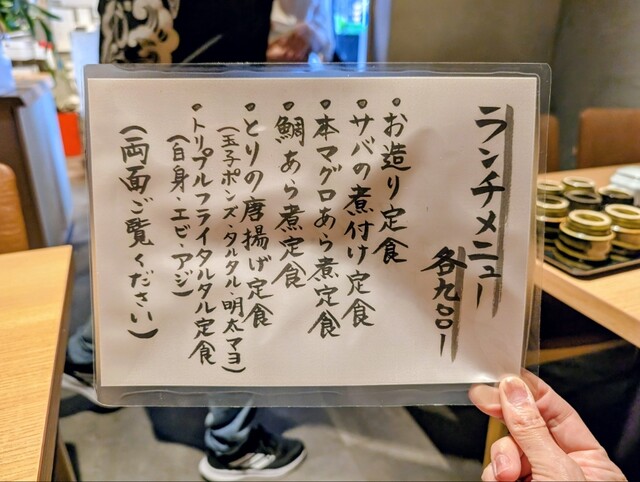 ランチメニュー
各九〇〇ー
・お造り定食
・サバの煮付け定食
・本マグロあら煮定食
・鯛あら煮定食
・とりの唐揚げ定食
(玉子ポンズ・タルタル・明太マヨ)
・トリプルフライタルタル定食
(自身・エビ・アジ)
(両面ご覧ください)